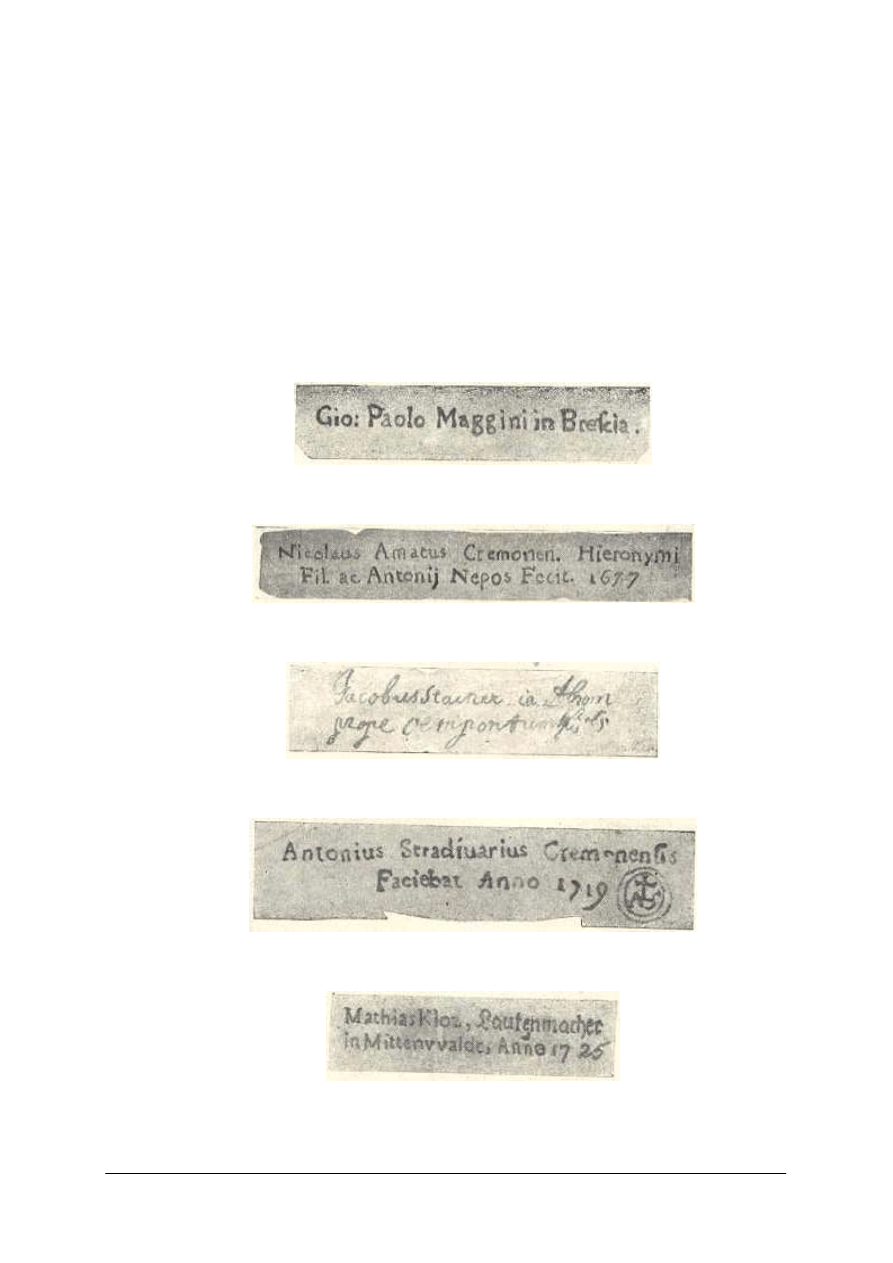 Gio: Paolo Maggini in Breſcia.
Nicolaus Amatus Cremonen. Hieronymi
Fil. ac Antonij Nepos Fecit. 1677
Jacobus Stainer in
prope oenipontum
Antonius Stradiuarius Cremonenſis
Faciebat Anno 1719
Mathias Kloz, Lautenmacher
in Mittenvvalde, Anno 1725